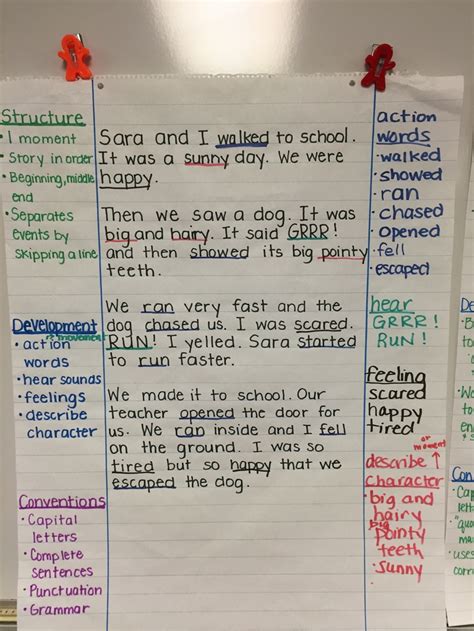 Structure
• 1 moment
• Story in order
• Beginning, middle
end
• Separates
events by
skipping a line
Development
movement
• action
words
• hear sounds
• feelings
• describe
character
Conventions
• Capital
letters
• Complete
sentences
• Punctuation
• Grammar
Sara and I walked to school.
It was a sunny day. We were
happy.
Then we saw a dog. It was
big and hairy. It said GRRR!
and then showed its big pointy
teeth.
We ran very fast and the
dog chased us. I was scared.
RUN! I yelled. Sara started
to run faster.
We made it to school. Our
teacher opened the door for
us. We ran inside and I fell
on the ground. I was so
tired but so happy that we
escaped the dog.
action
words
• walked
• showed
• ran
• chased
• opened
• fell
• escaped
hear
GRRR!
RUN!
feeling
scared
happy
tired
or
moment
describe
character
• big and
hairy
• big
pointy
teeth
• sunny